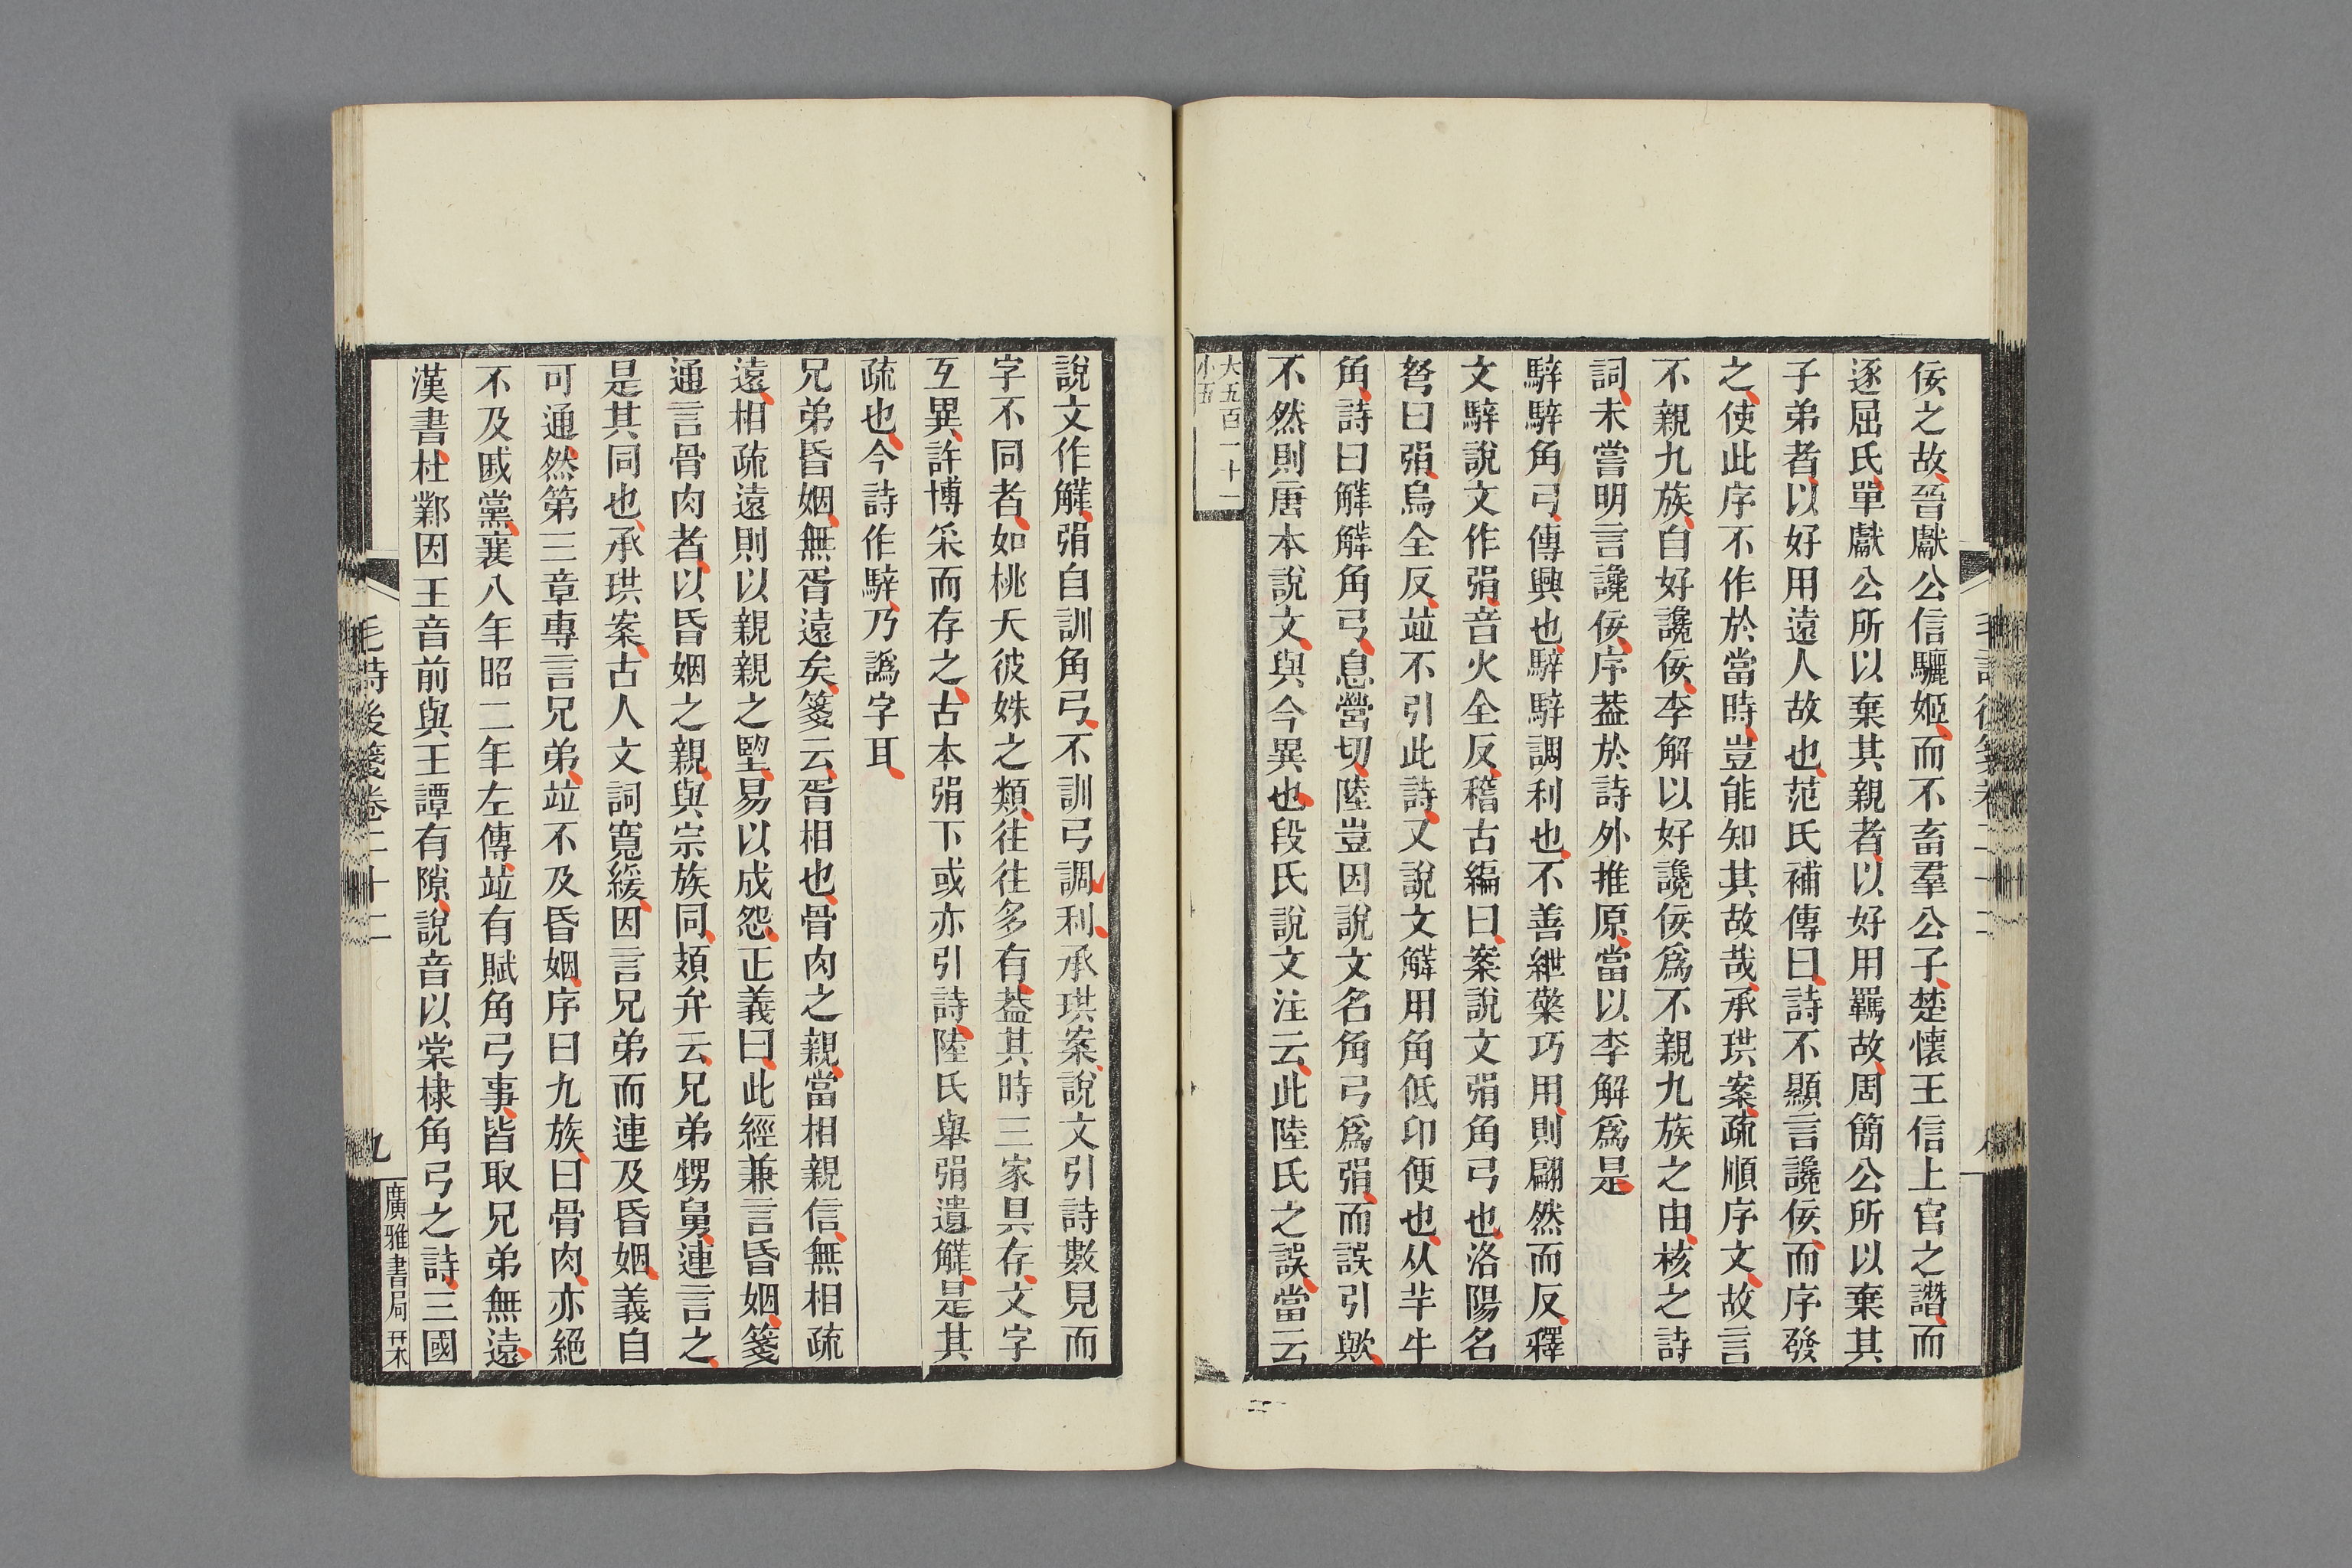 佞之故晉獻公信驪姬而不畜羣公子楚懷王信上官之譖而
逐屈氏單獻公所以棄其親者以好用羈故周簡公所以棄其
子弟者以好用遠人故也范氏補傳曰詩不顯言讒佞而序發
之使此序不作於當時豈能知其故哉承珙案疏順序文故言
不親九族自好讒佞李解以好讒佞爲不親九族之由核之詩
詞未嘗明言讒佞序葢於詩外推原當以李解爲是
騂騂角弓傳興也騂騂調利也不善紲檠巧用則翩然而反釋
文騂說文作弲音火全反稽古編曰案說文弲角弓也洛陽名
弩曰弲烏全反竝不引此詩又說文觲用角低卬便也从羊牛
角詩曰觲觲角弓息營切陸豈因說文名角弓爲弲而誤引歟
不然則唐本說文與今異也段氏說文注云此陸氏之誤當云
大五百一十一
小五
說文作觲弲自訓角弓不訓弓調利承珙案說文引詩數見而
字不同者如桃夭彼姝之類往往多有葢其時三家具存文字
互異許博采而存之古本弲下或亦引詩陸氏舉弲遺觲是其
疏也今詩作騂乃譌字耳
兄弟昏姻無胥遠矣箋云胥相也骨肉之親當相親信無相疏
遠相疏遠則以親親之朢易以成怨正義曰此經兼言昏姻箋
通言骨肉者以昏姻之親與宗族同頍弁云兄弟甥舅連言之
是其同也承珙案古人文詞寬緩因言兄弟而連及昏姻義自
可通然第三章專言兄弟竝不及昏姻序曰九族曰骨肉亦絕
不及戚黨襄八年昭二年左傳竝有賦角弓事皆取兄弟無遠
漢書杜鄴因王音前與王譚有隙說音以棠棣角弓之詩三國
毛詩後箋卷二十二
九
廣雅書局栞